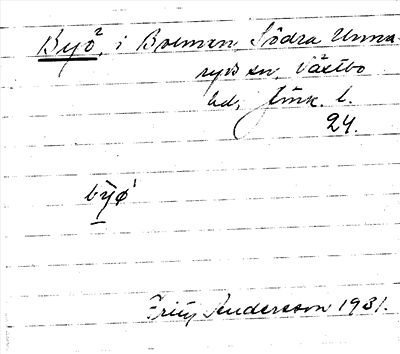 Byö², i Bolmen, Södra Unna-
ryds sn, Västbo
hd, Jönk. l.
24.
bẏø¹
Fritz Andersson 1931.